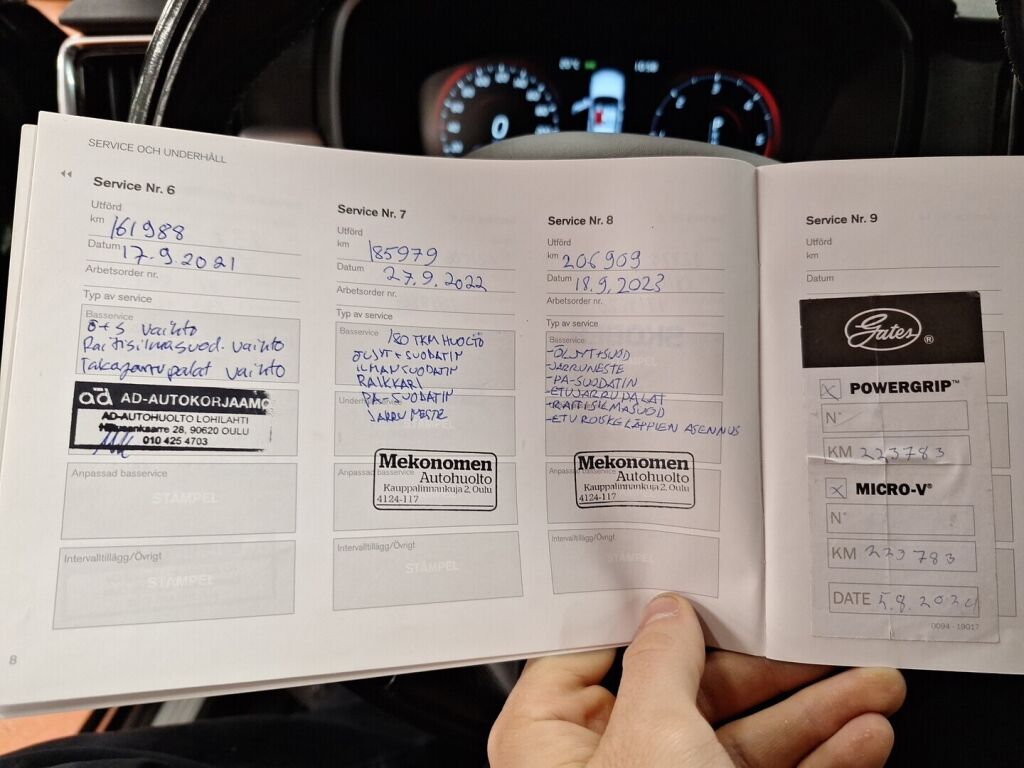 SERVICE OCH UNDERHÅLL
Service Nr. 6
Utförd
km 161988
Datum 17.9.2021
Arbetsorder nr.
Typ av service
Basservice
Ö+S vaihto
Raitisilmasuod. vaihto
Takajarrupalat vaihto
ad AD-AUTOKORJAAMO
AD-AUTOHUOLTO LOHILAHTI
28, 90620 OULU
010 425 4703
Anpassad basservice
STÄMPEL
Intervalltillägg/Övrigt
STÄMPEL
8
Service Nr. 7
Utförd
km 185979
Datum 27.9.2022
Arbetsorder nr.
Typ av service
Basservice
180 TKM HUOLTO
ÖLJYT+SUODATIN
ILMANSUODATIN
RAIKKARI
PA-SUODATIN
JARRUNESTE
Anpassad basservice
Mekonomen
Autohuolto
Kauppalinnankuja 2, Oulu
4124-117
Intervalltillägg/Övrigt
STÄMPEL
Service Nr. 8
Utförd
km 206909
Datum 18.9.2023
Arbetsorder nr.
Typ av service
Basservice
-ÖLJYT+SUOD
-JARRUNESTE
-PA-SUODATIN
-ETUJARRUPALAT
-RAITISILMASUOD
-ETU ROISKELÄPPIEN ASENNUS
Anpassad basservice
Mekonomen
Autohuolto
Kauppalinnankuja 2, Oulu
4124-117
Intervalltillägg/Övrigt
STÄMPEL
Service Nr. 9
Utförd
km
Datum
Gates ®
POWERGRIP™
N°
KM 223783
MICRO-V®
N°
KM 223783
DATE 5.8.2024
0094 - 19017